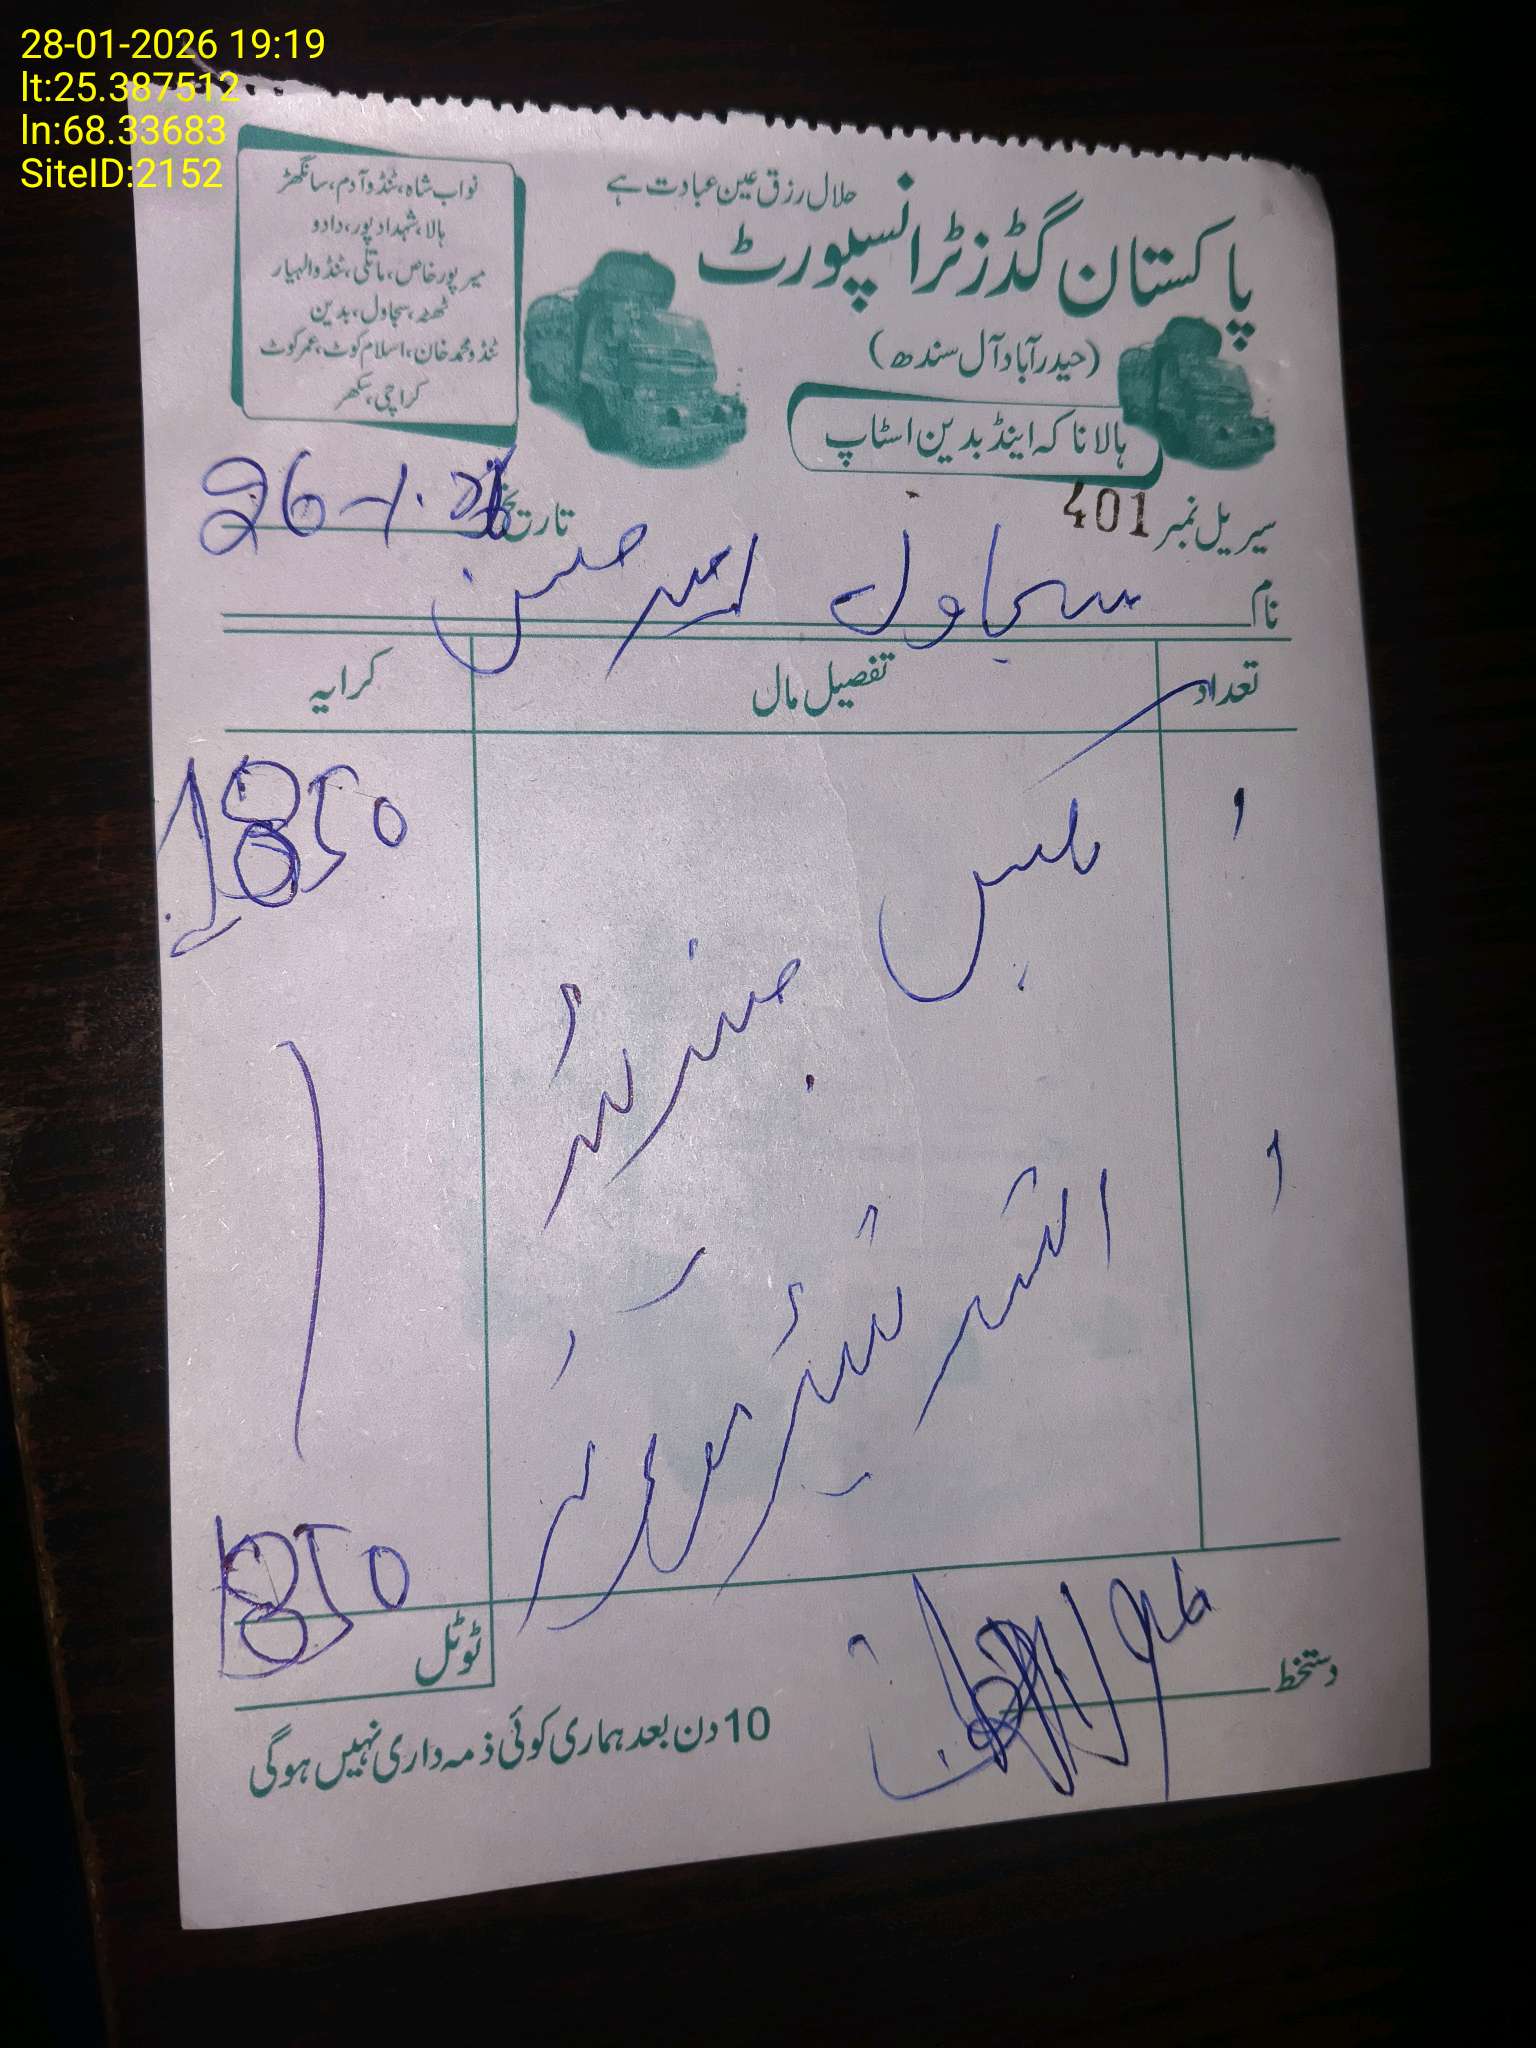 28-01-2026 19:19
lt:25.387512
ln:68.33683
SiteID:2152
حلال رزق عین عبادت ہے
پاکستان گڈز ٹرانسپورٹ
(حیدرآباد آل سندھ)
ہالا ناکہ اینڈ بدین اسٹاپ
نواب شاہ، ٹنڈو آدم، سانگھڑ
ہالا، شہداد پور، دادو
میرپور خاص، ماتلی، ٹنڈوالہیار
ٹھٹہ، سجاول، بدین
ٹنڈو محمد خان، اسلام کوٹ، عمر کوٹ
کراچی، سکھر
سیریل نمبر 401
تاریخ 26-1-
نام سجاول امیر حسن
تعداد تفصیل مال کرایہ
1 بکس 1850
جنریٹر
1
ٹوٹل 1850
دستخط
10 دن بعد ہماری کوئی ذمہ داری نہیں ہوگی